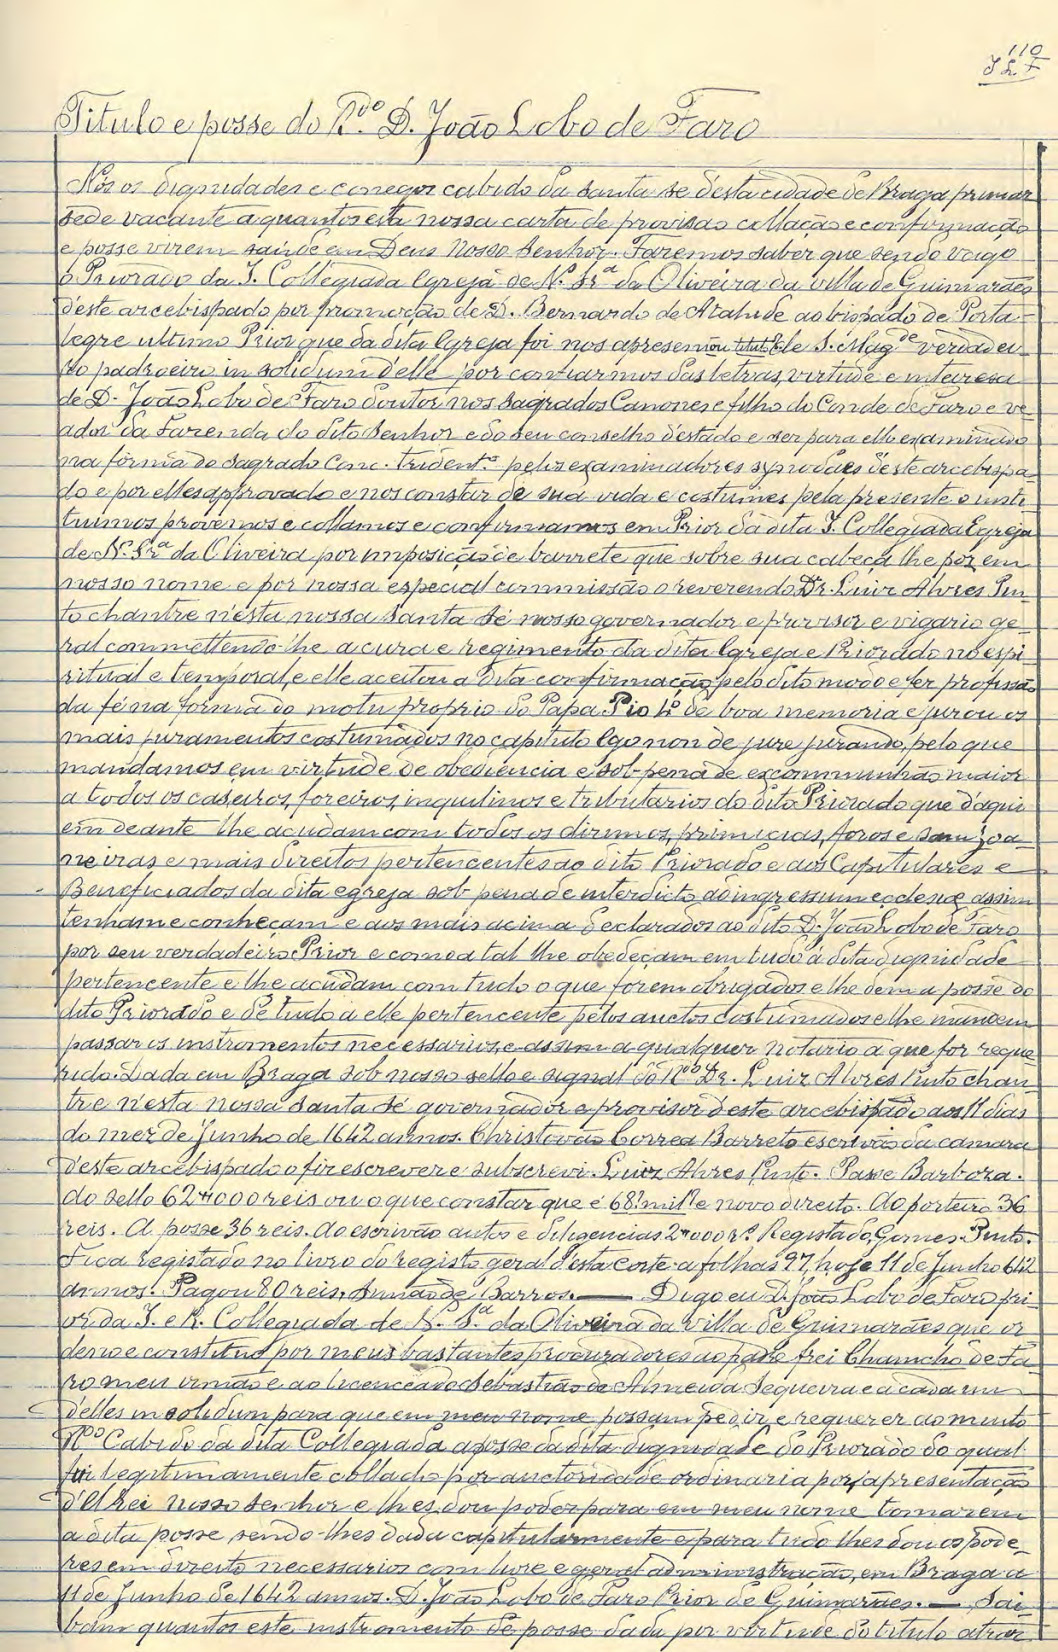 110
Titulo e posse do R.do D. João Lobo de Faro
Nós os dignidades e conegos cabido da santa se d'esta cidade de Braga primaz
sede vacante a quantos esta nossa carta de provisão collação e confirmação
e posse virem saúde em Deus Nosso Senhor. Fazemos saber que sendo vago
o Priorado da I. Collegiada Egreja de N.ª Sr.ª da Oliveira da villa de Guimarães
d'este arcebispado por promoção de D. Bernardo de Atahide ao bispado de Porta-
legre ultimo Prior que da dita Egreja foi nos apresentou S. Mag.de verdadei-
ro padroeiro in solidum d'elle por confiarmos das letras, virtude e inteiresa
de D. João Lobo de Faro doutor nos Sagrados Canones e filho do Conde de Faro e ve-
ador da Fazenda do dito Senhor e do seu conselho d'estado e ser para ello examinado
na fórma do Sagrado Conc. Trident.º pelos examinadores synodaes d'este arcebispa-
do e por elles approvado e nos constar de sua vida e costumes pela presente o insti-
tuimos provemos e collamos e confirmamos em Prior da dita I. Collegiada Egreja
de N.ª Sr.ª da Oliveira por imposição de barrete que sobre sua cabeça lhe poz em
nosso nome e por nossa especial commissão o reverendo Dr. Luiz Alvres Pin-
to chantre n'esta nossa santa Sé nosso governador e provisor e vigario ge-
ral commettendo-lhe a cura e regimento da dita Egreja e Priorado no espi-
ritual e temporal, e elle aceitou a dita confirmação pelo dito modo e fez profissão
da fé na forma do motu proprio do Papa Pio 4º de boa memoria e jurou os
mais juramentos costumados no capitulo Ego non de jure jurando, pelo que
mandamos em virtude de obediencia e sob pena de excommunhão maior
a todos os caseiros, foreiros, inquilinos e tributarios do dito Priorado que d'aqui
em deante lhe acudam com todos os dizimos, primicias, foros e sanjoa-
neiras e mais direitos pertencentes ao dito Priorado e aos Capitulares e
Beneficiados da dita egreja sob pena de interdicto ab ingressum ecclesiæ assim
tenham e conheçam e aos mais acima declarados ao dito D. João Lobo de Faro
por seu verdadeiro Prior e como a tal lhe obedeçam em tudo á dita dignidade
pertencente e lhe acudam com tudo o que forem obrigados e lhe dêm a posse do
dito Priorado e de tudo a elle pertencente pelos auctos costumados e lhe mandem
passar os instromentos necessarios, e assim a qualquer notario a que for reque-
rido. Dada em Braga sob nosso sello e signal do R.do Dr. Luiz Alvres Pinto chan-
tre n'esta nossa santa Sé governador e provisor d'este arcebispado aos 11 dias
do mez de Junho de 1642 annos. Christovão Correa Barreto escrivão da camara
d'este arcebispado o fiz escrever e subscrevi. Luiz Alvres Pinto. Passe Barboza.
do sello 62$000 reis ou o que constar que é 68 mil e novo direito. Ao porteiro 36
reis. A posse 36 reis. Ao escrivão autos e diligencias 2$000 r.s Registado, Gomes. Pinto.
Fica registado no livro do registo geral d'esta corte a folhas 97, hoje 11 de Junho 642
annos. Pagou 80 reis, Simão de Barros. — Digo eu D. João Lobo de Faro Pri-
or da I. e R. Collegiada de N. S.ª da Oliveira da villa de Guimarães que or-
deno e constituo por meus bastantes procuradores ao padre frei de Fa-
ro meu irmão e ao licenceado Sebastião de Almeida Sequeira e a cada um
d'elles in solidum para que em meu nome possam pedir e requerer ao muito
R.do Cabido da dita Collegiada a posse da dita dignidade do Priorado do qual
fui legitimamente collado por auctoridade ordinaria por apresentação
d'El-rei nosso senhor e lhes dou poder para em meu nome tomarem
a dita posse, sendo-lhes dada capitularmente e para tudo lhes dou os pode-
res em direito necessarios com livre e geral administração, em Braga a
11 de Junho de 1642 annos. D. João Lobo de Faro Prior de Guimarães. — Sai-
bam quantos este instromento de posse dada por virtude do titulo atraz